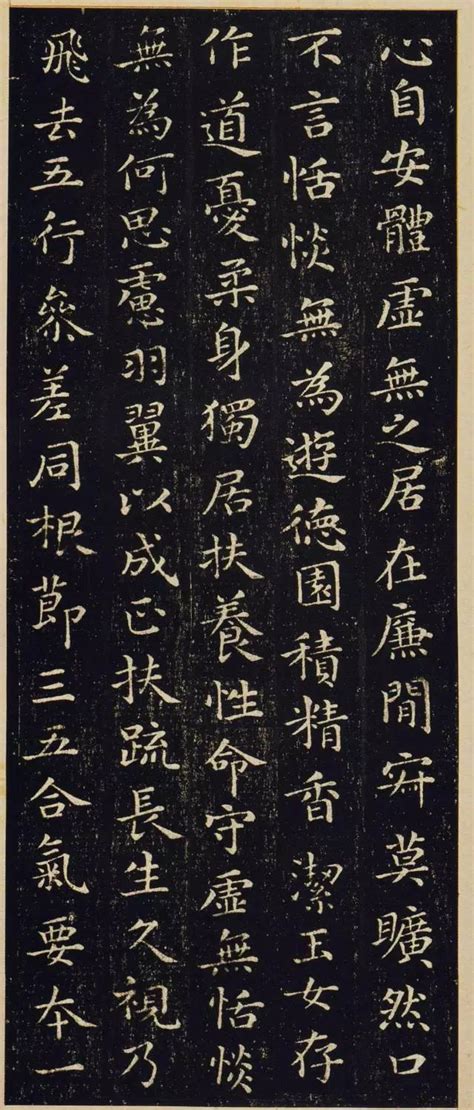 心自安體虛無之居在廉間𡧯莫曠然口
不言恬惔無為遊德園積精香潔玉女存
作道憂柔身獨居扶養性命守虛無恬惔
無為何思慮羽翼以成正扶疏長生久視乃
飛去五行叅差同根節三五合氣要本一